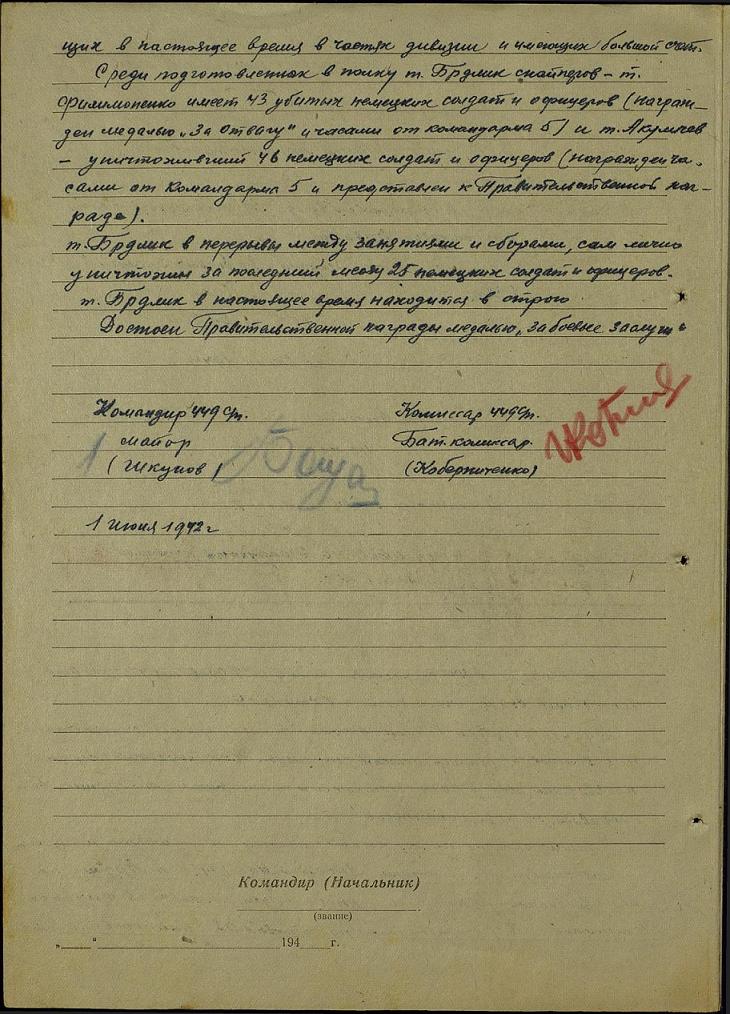 щих в настоящее время в частях дивизии и имеющих большой счёт.
Среди подготовленных в полку т. Брдлик снайперов – т.
Филимоненко имеет 43 убитых немецких солдат и офицеров (награж-
ден медалью „За отвагу" и часами от командарма 5) и т. Акуличев
– уничтоживший 46 немецких солдат и офицеров (награжден ча-
сами от Командарма 5 и представлен к Правительственной наг-
раде).
т. Брдлик в перерывы между занятиями и сборами, сам лично
уничтожил за последний месяц 25 немецких солдат и офицеров.
т. Брдлик в настоящее время находится в строю
Достоен Правительственной награды медалью „За боевые заслуги"
Командир 449 сп.
майор
(Шкунов)
Комиссар 449 сп.
Бат. комиссар
1 июня 1942 г
Командир (Начальник)
(звание)
„ " 194 г.